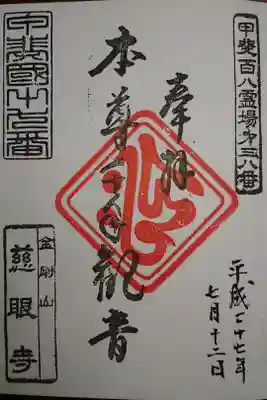 甲斐百八霊場第三八番
奉拝
平成二十七年
七月十二日
本尊千手観音
甲斐國
番
金剛山
慈眼寺